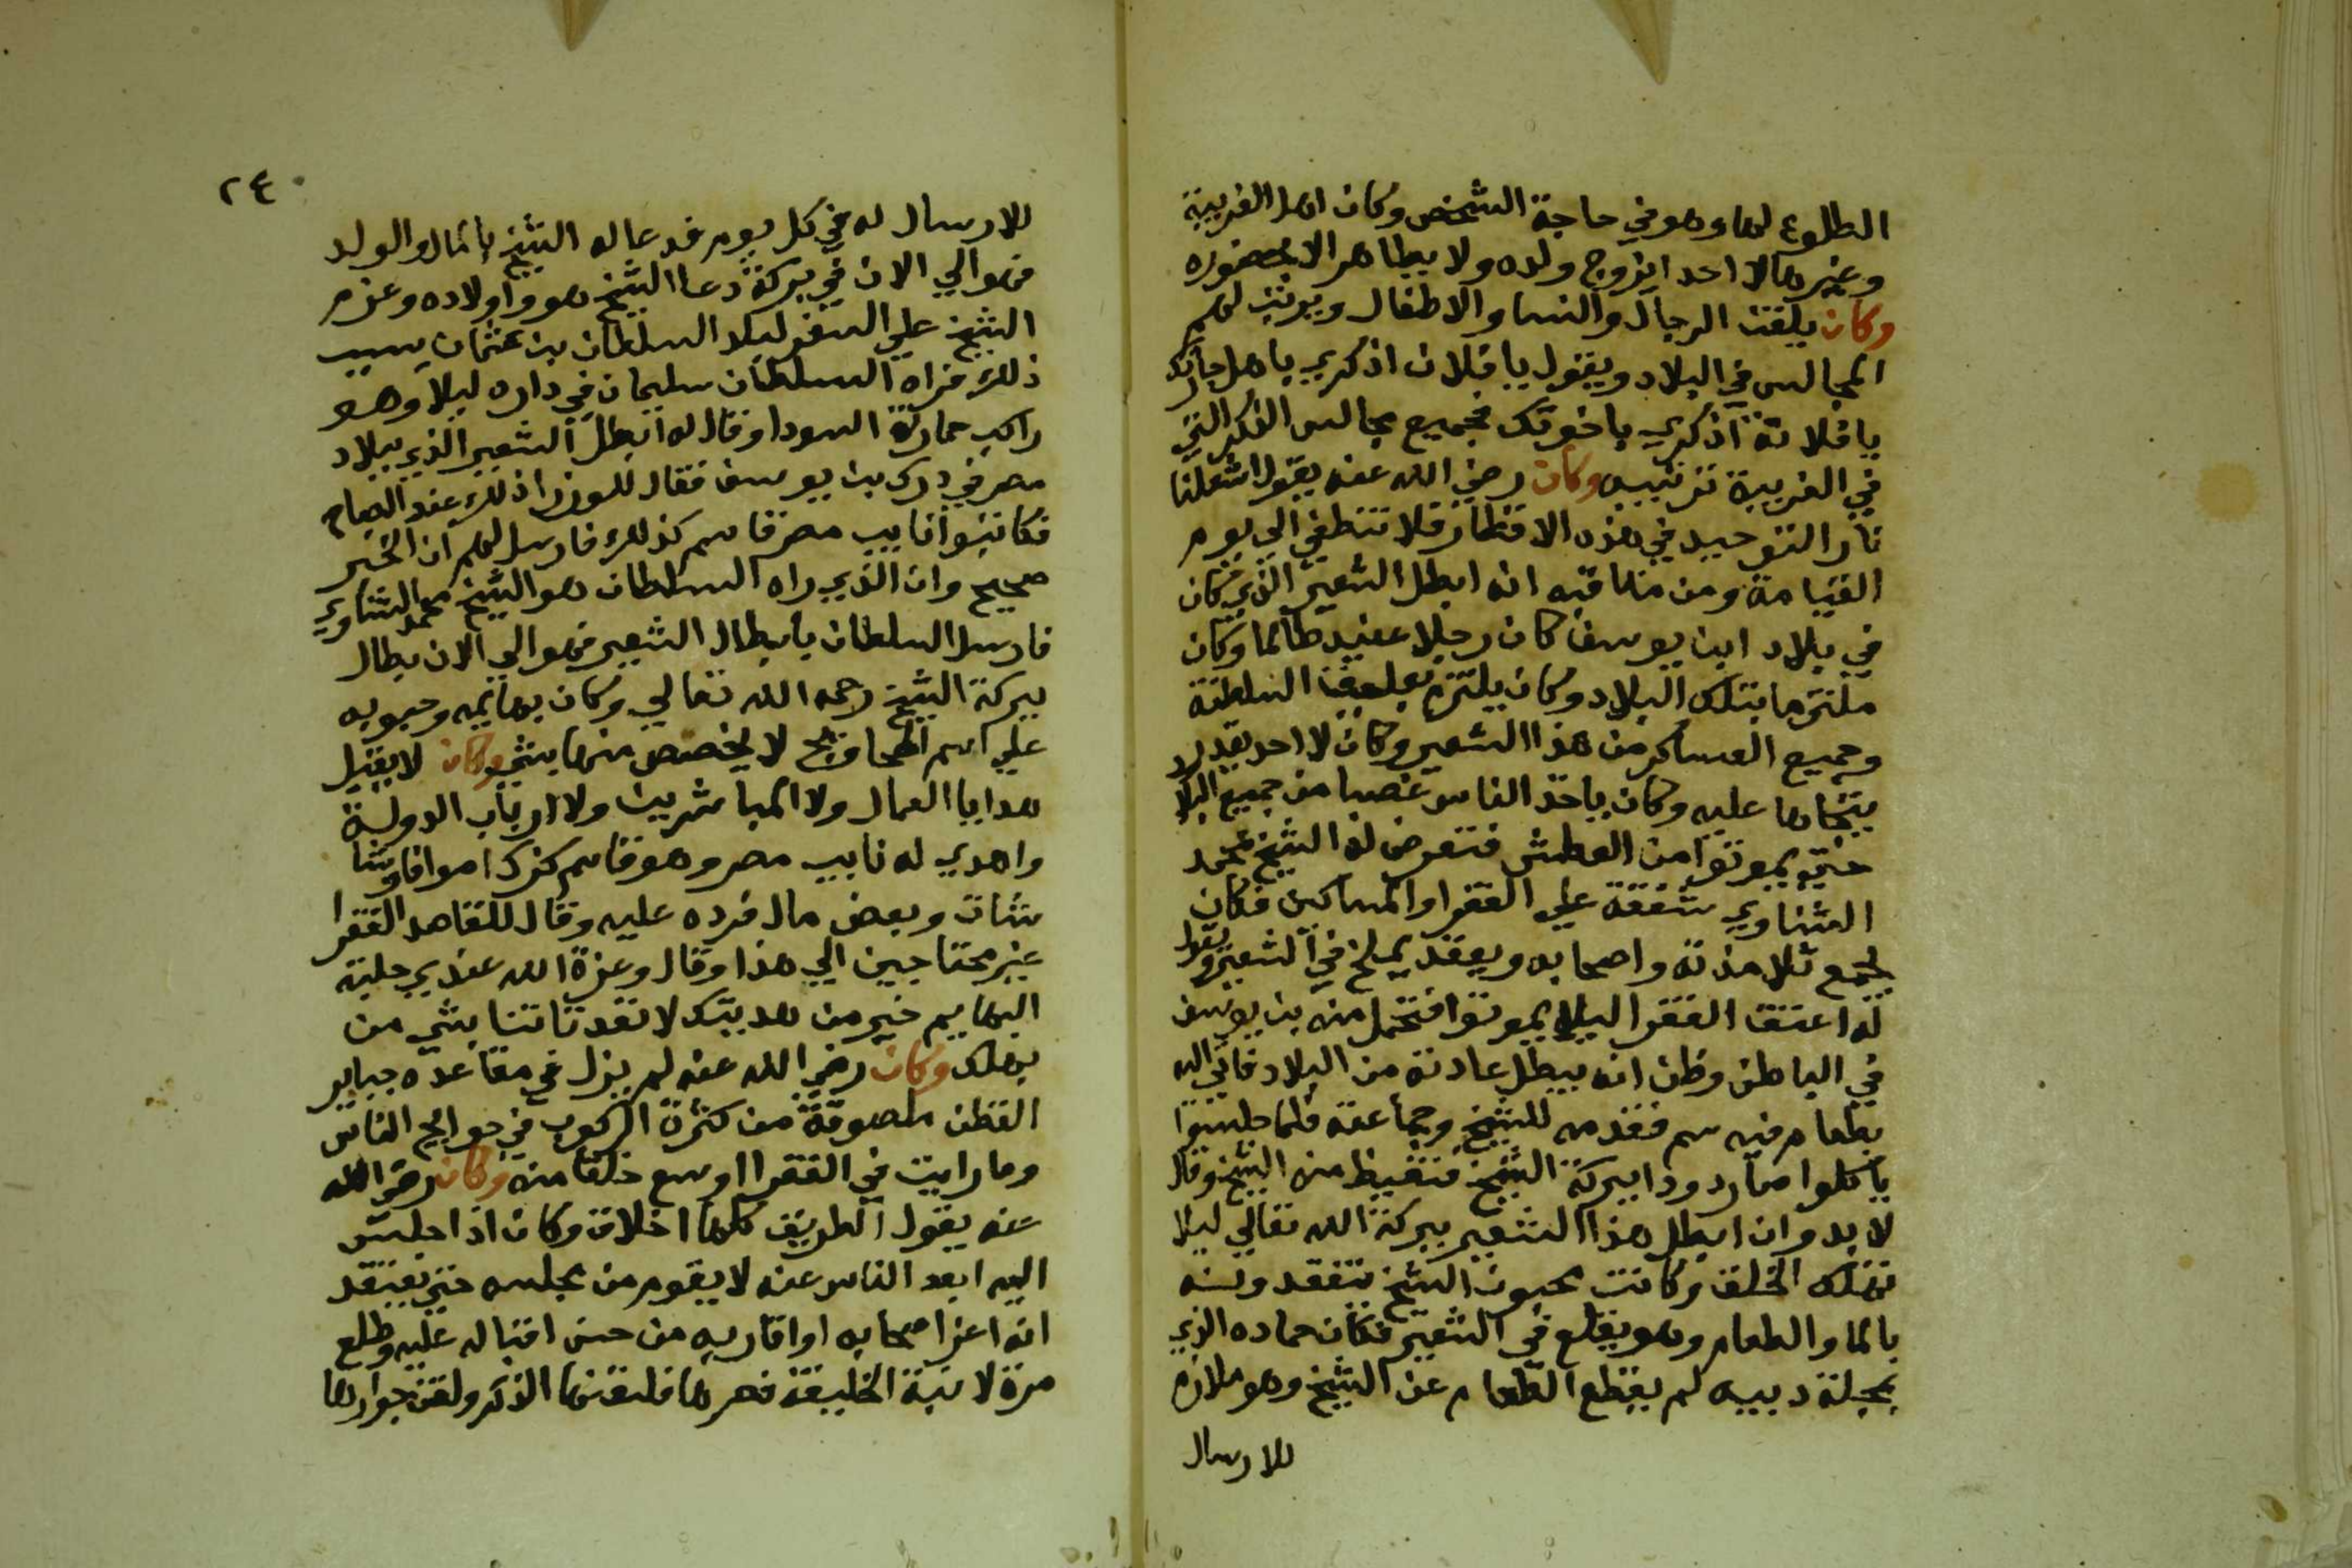 الطلوع لها وهو في حاجة الشخص وكان اهل الغربية
وغيرها لا احد ايزوج ولده ولا يطاهر الا بحضوره
وكان يلقن الرجال والنسا والاطفال ويرتب لهم
المجالس في البلاد ويقول يا فلان اذكري باهل حارتك
يا فلانة اذكري باخوتك فجميع مجالس الذكر التي
في الغربية ترتيبه وكان رضي الله عنه يقول اشعلنا
نار التوحيد في هذه الاقطار فلا تنطفي الي يوم
القيامة ومن مناقبه انه ابطل الشعير الذي كان
في بلاد ابن يوسف كان رجلا عنيد ظالما وكان
ملتزما بتلك البلاد وكان يلتزم بعليق السلطنة
وجميع العساكر من هذا الشعير وكان لا احد يقدر
يتجاها عليه وكان ياخذ الناس غصبا من جميع البلاد
حتي يموتوا من العطش فتعرض له الشيخ محمد
الشناوي شفقة علي الفقرا والمساكين فكان
يجمع تلامذته واصحابه ويقعد يملخ في الشعير ويقول
له اعتق الفقرا ليلا يموتوا فتحمل منه بن يوسف
في الباطن وظن انه يبطل عادته من البلاد فاتي اليه
بطعام فيه سم فقدمه للشيخ وجماعته فلما جلسوا
ياكلوا صار دودا ببركة الشيخ فتغيظ منه الشيخ وقال
لا بد وان ابطل هذا الشعير ببركة الله تعالي ليلا
تهلك الخلق وكانت محبون الشيخ تتفقدونه
بالما والطعام وهو يقلع في الشعير فكان حماده الذي
بمحلة دبيه لم يقطع الطعام عن الشيخ وهو ملازم
للارسال
٢٤
للارسال له في كل يوم فدعا له الشيخ بالمال والولد
فهو الي الان في بركة دعا الشيخ هو واولاده وعزم
الشيخ علي السفر لبلاد السلطان بن عثمان بسبب
ذلك فراه السلطان سليمان في داره ليلا وهو
راكب حمارته السودا وقال له ابطل الشعير الذي ببلاد
مصر في درك بن يوسف فقال للوزرا ذلك عند الصباح
فكاتبوا نايب مصر قاسم كذلك فارسل لهم ان الخبر
صحيح وان الذي راه السلطان هو الشيخ محمد الشناوي
فارسل السلطان بابطال الشعير فهو الي الان بطال
ببركة الشيخ رحمه الله تعالي وكان بهايمه وحبوبه
علي اسم المحاويج لا يختص منها بشي وكان لا يقبل
هدايا العمال ولا المباشرين ولا ارباب الدولة
واهدي له نايب مصر وهو قاسم كزك اموافا وشا
شات وبعض مال فرده عليه وقال للقاصد الفقرا
غير محتاجين الي هذا وقال وعزة الله عندي جلة
البهايم خير من هديتك لا تعد تاتنا بشي من
بهلك وكان رضي الله عنه لم يزل في مقاعده حباير
القطن ملصوقة من كثرة الركوب في حوايج الناس
وما رايت في الفقرا اوسع خلقا منه وكان رضي الله
عنه يقول الطريق كلها اخلاق وكان اذا جلس
اليه ابعد الناس عنه لا يقوم من مجلسه حتي يعتقد
انه اعز اصحابه او اقاربه من حسن اقباله عليه وطلع
مرة لابنة الخليفة فلقنها الذكر ولقن جوارها